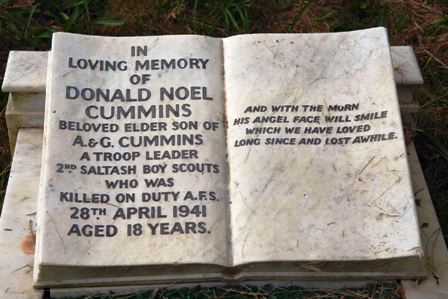 IN
LOVING MEMORY
OF
DONALD NOEL
CUMMINS
BELOVED ELDER SON OF
A.&G. CUMMINS
A TROOP LEADER
2ND SALTASH BOY SCOUTS
WHO WAS
KILLED ON DUTY A.F.S.
28TH APRIL 1941
AGED 18 YEARS.
AND WITH THE MORN
HIS ANGEL FACE WILL SMILE
WHICH WE HAVE LOVED
LONG SINCE AND LOST AWHILE.